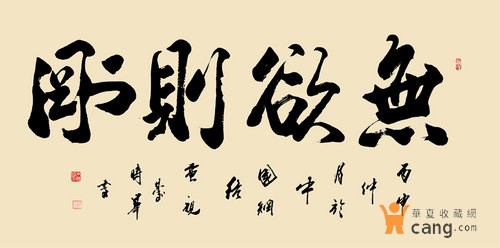 無欲則剛
丙申
仲
月於
中
國網
絡
電視
臺
時華
書
華夏收藏網
cang.com